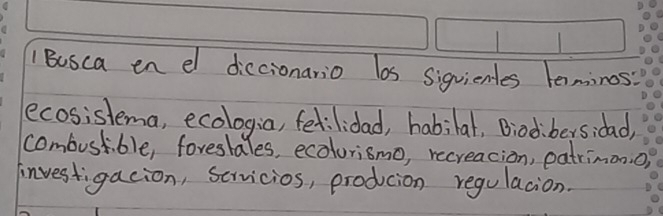 1 Busca en el diccionario los siguientes terminos:
ecosistema, ecologia, fetilidad, habitat, Biodibersidad,
combustible, forestales, ecoturismo, recreacion, patrimonio,
investigacion, servicios, producion regulacion.